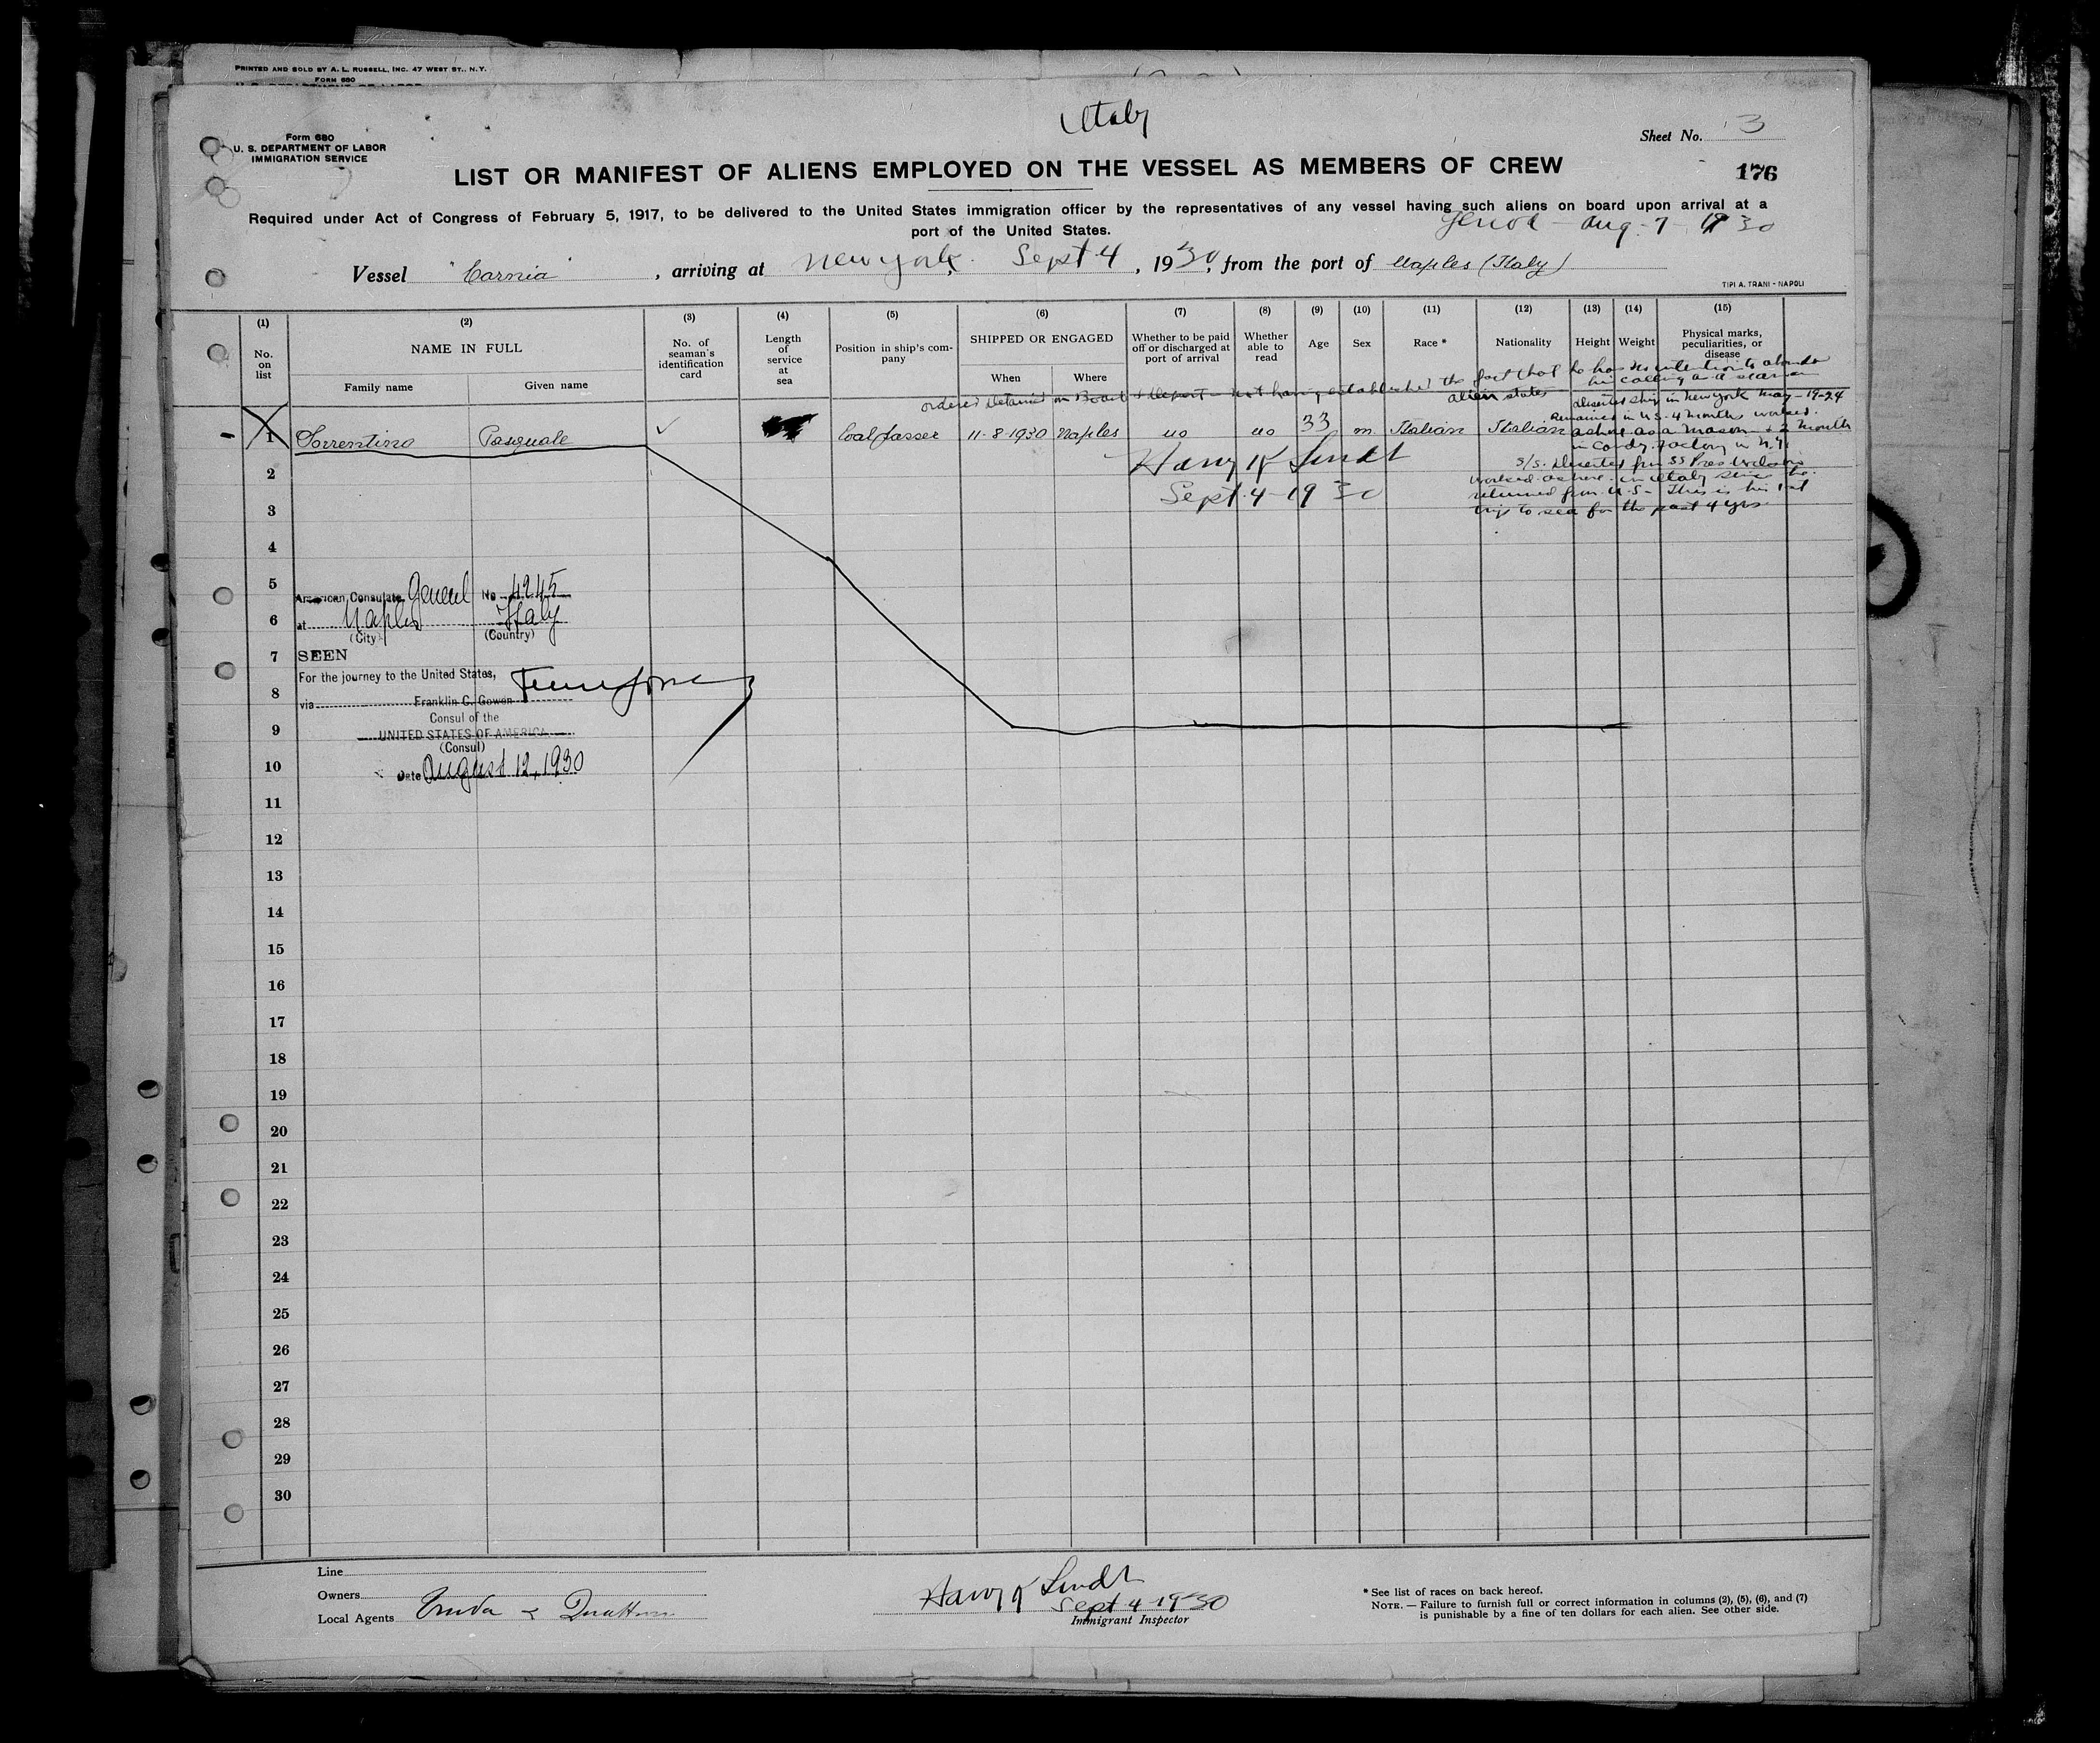 PRINTED AND SOLD BY A. L. RUSSELL, INC. 47 WEST ST., N.Y.
FORM 680
U. S. DEPARTMENT OF LABOR
Italy
Form 680
U. S. DEPARTMENT OF LABOR
IMMIGRATION SERVICE
Sheet No. 3
LIST OR MANIFEST OF ALIENS EMPLOYED ON THE VESSEL AS MEMBERS OF CREW
176
Required under Act of Congress of February 5, 1917, to be delivered to the United States immigration officer by the representatives of any vessel having such aliens on board upon arrival at a
port of the United States.
Aug-7-1930
Vessel "Carnia", arriving at New York. Sept 4, 1930, from the port of Naples (Italy)
TIPI A. TRANI - NAPOLI
(1) (2) (3) (4) (5) (6) (7) (8) (9) (10) (11) (12) (13) (14) (15)
No. on list
NAME IN FULL
Family name Given name
No. of seaman's identification card
Length of service at sea
Position in ship's company
SHIPPED OR ENGAGED
When Where
Whether to be paid off or discharged at port of arrival
Whether able to read
Age
Sex
Race *
Nationality
Height
Weight
Physical marks, peculiarities, or disease
ordered detained on Board & deport - not having established the fact that he has no intention to abandon
his calling as a seaman
alien states deserted ship in New York May-19-24
Remained in U.S. 4 months worked
1 Sorrentino Pasquale ✓ Coal passer 11-8-1930 Naples no no 33 m. Italian Italian ashore as a mason & 2 months
in candy factory in N.Y.
Harry K Lindt
s/s. Deserted from SS Pres Wilson
2
worked ashore in Italy since he
Sept. 4-1930
returned from U.S. This is his 1st
3
trip to sea for the past 4 yrs
4
5
American Consulate General No 4245
6
at Naples Italy
(City) (Country)
7
SEEN
For the journey to the United States,
8
via Franklin C. Gowen
Consul of the
9
UNITED STATES OF AMERICA
(Consul)
10
Date August 12, 1930
11
12
13
14
15
16
17
18
19
20
21
22
23
24
25
26
27
28
29
30
Line
Owners
Local Agents
Harry K Lindt
Sept 4-1930
Immigrant Inspector
* See list of races on back hereof.
NOTE. — Failure to furnish full or correct information in columns (2), (5), (6), and (7)
is punishable by a fine of ten dollars for each alien. See other side.